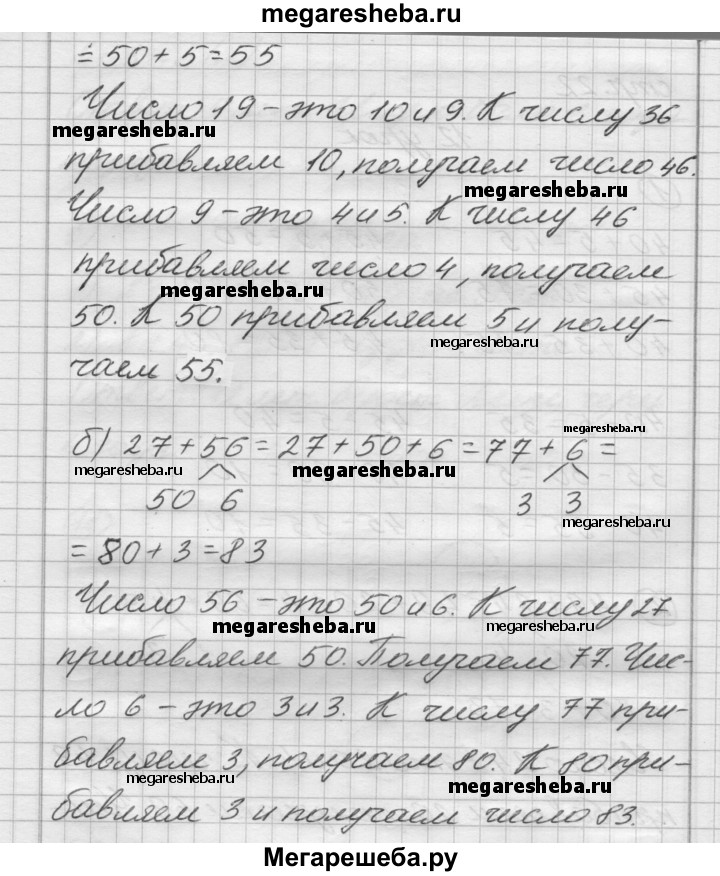 megaresheba.ru
= 50 + 5 = 55
Число 19 – это 10 и 9. К числу 36
megaresheba.ru
прибавляем 10, получаем число 46.
megaresheba.ru
Число 9 – это 4 и 5. К числу 46
прибавляем число 4, получаем
megaresheba.ru
50. К 50 прибавляем 5 и полу-
megaresheba.ru
чаем 55.
megaresheba.ru
б) 27 + 56 = 27 + 50 + 6 = 77 + 6 =
megaresheba.ru megaresheba.ru
50 6 3 3
megaresheba.ru
= 80 + 3 = 83
Число 56 – это 50 и 6. К числу 27
megaresheba.ru megaresheba.ru
прибавляем 50. Получаем 77. Чис-
ло 6 – это 3 и 3. К числу 77 при-
бавляем 3, получаем 80. К 80 при-
megaresheba.ru megaresheba.ru
бавляем 3 и получаем число 83.
Мегарешеба.ру